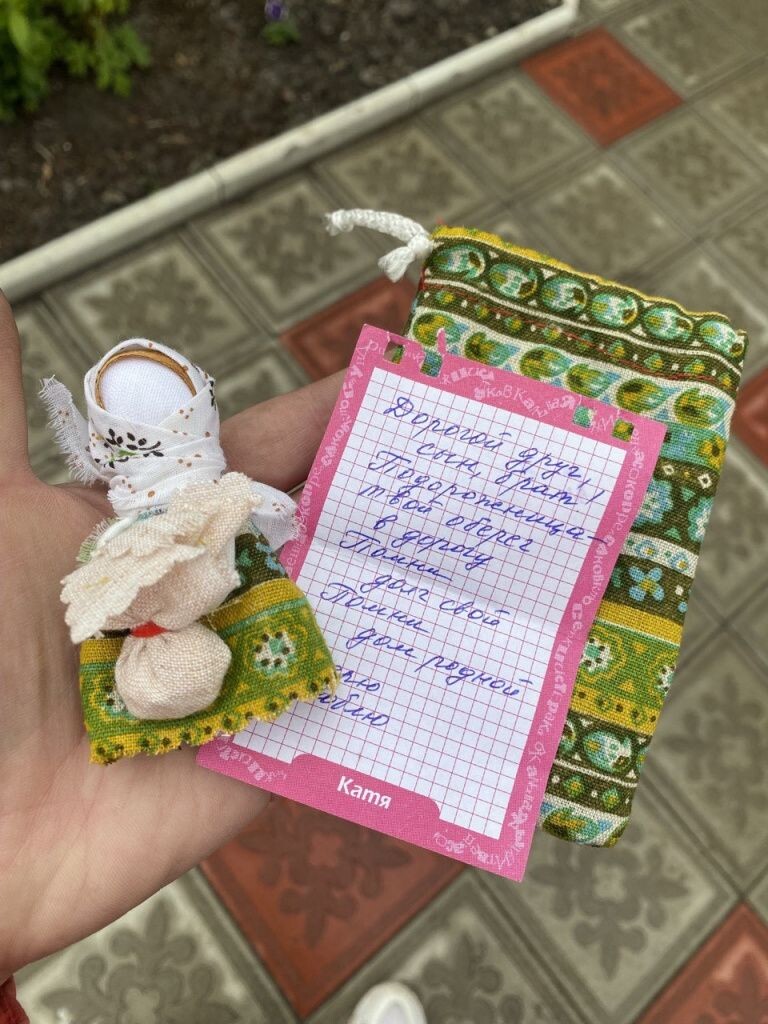 Дорогой друг,
сын, брат!
Подорожница-
твой оберег
в дорогу
Помни
долг свой
Помни
дом родной
Катя